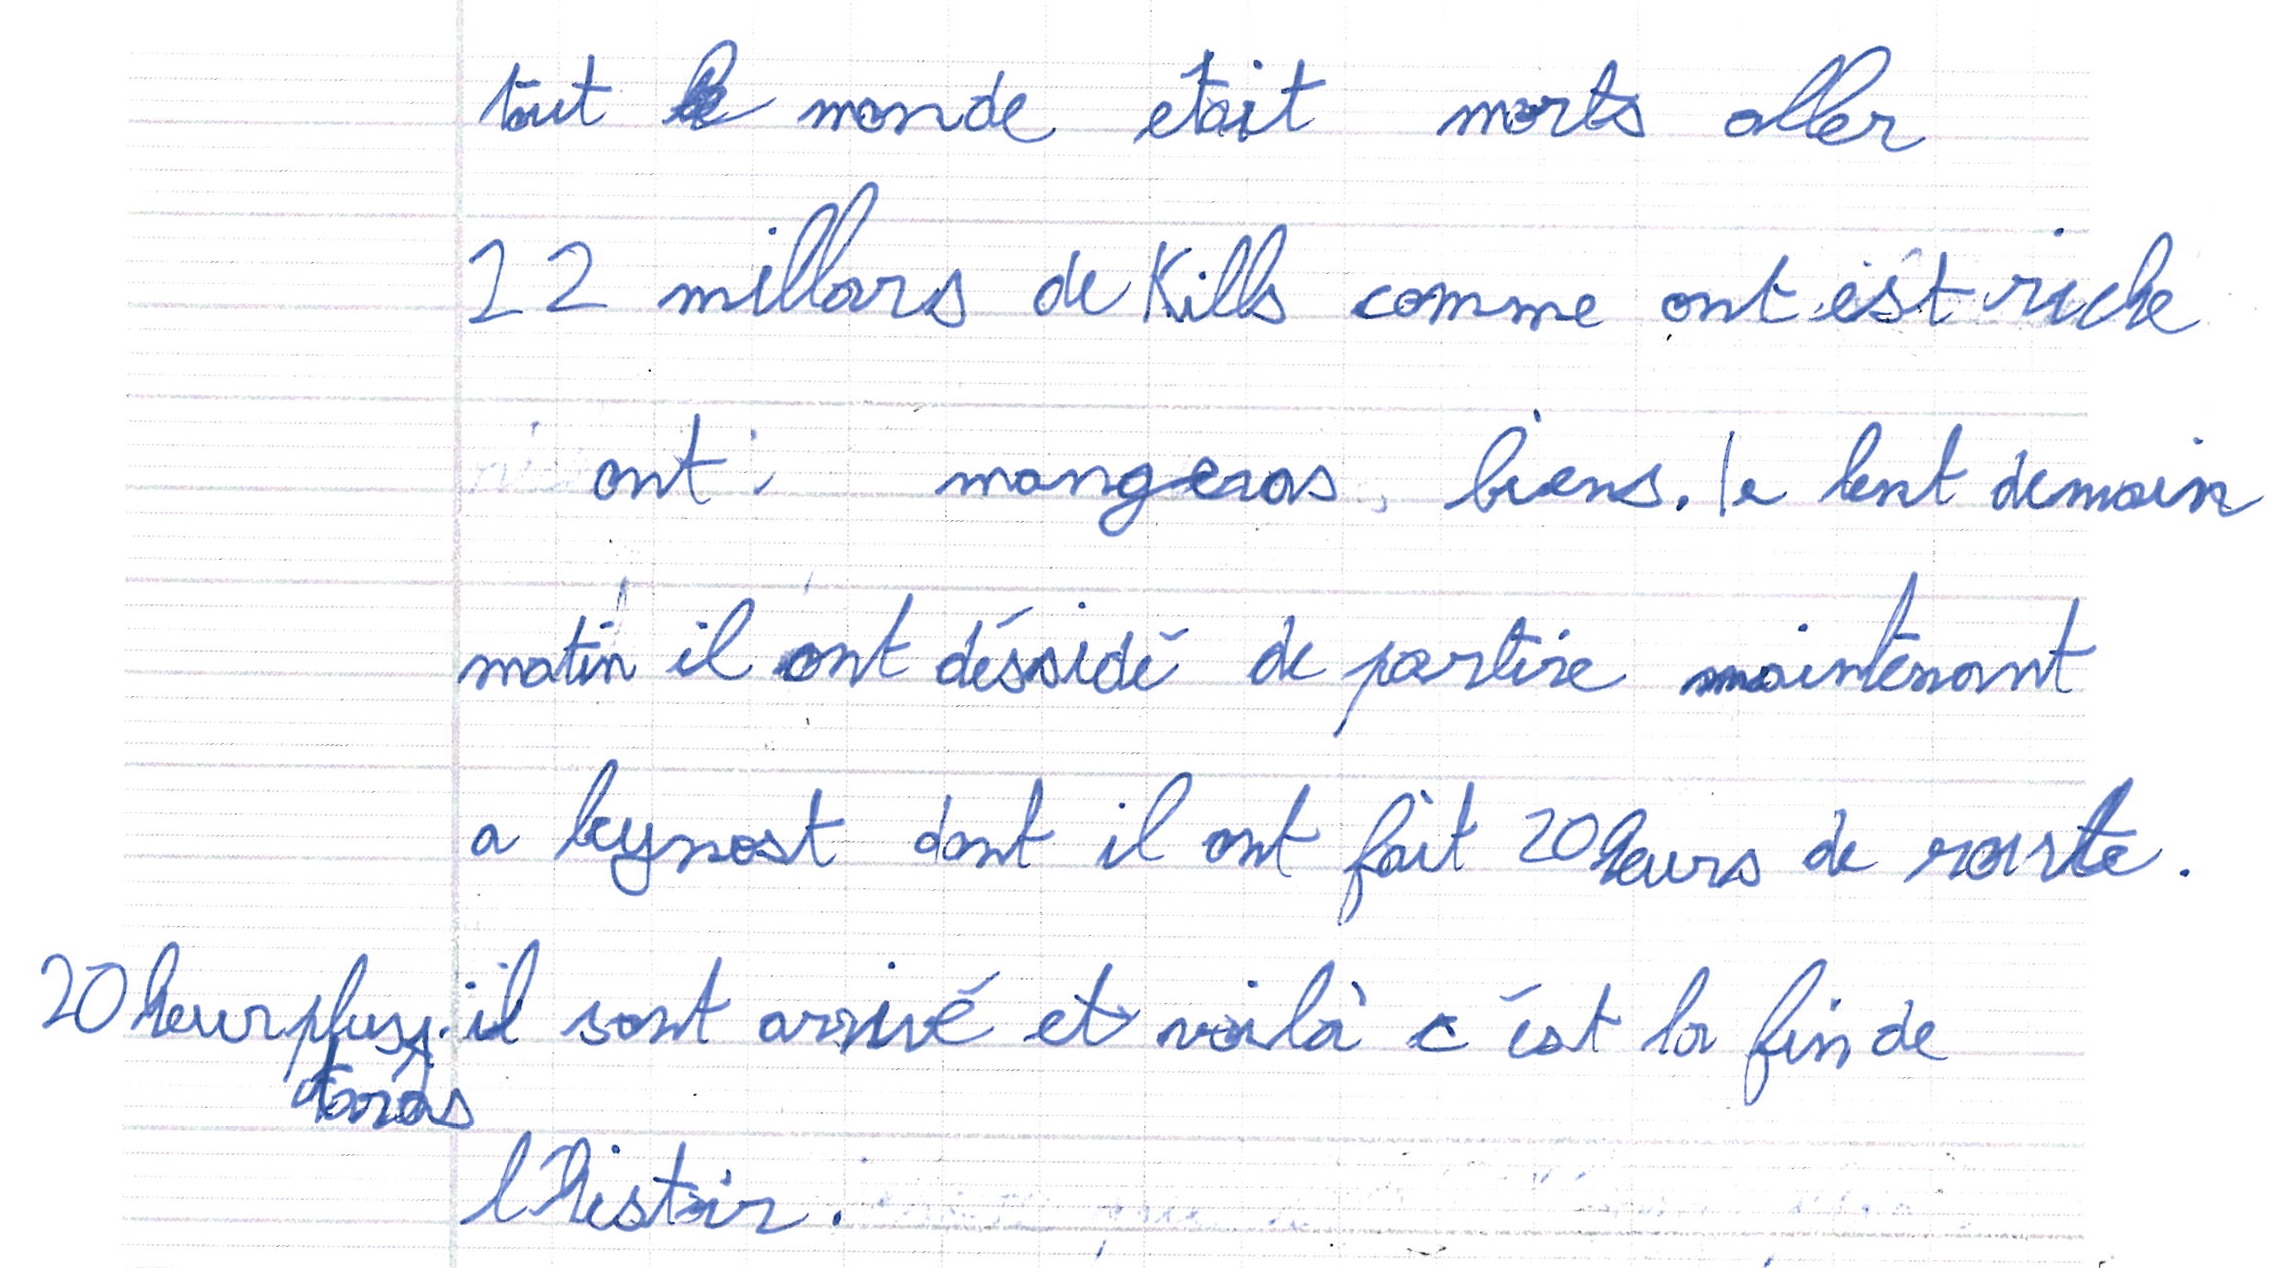 tout le monde etait morts aller
22 millars de Kills comme ont est riche
ont mangeras biens. le lent demain
matin il ont déssidé de partire maintenant
a leynost dont il ont fait 20 heurs de route.
20 heur plus il sont arrivé et voilà c'ést la fin de
tard
l'histoir.